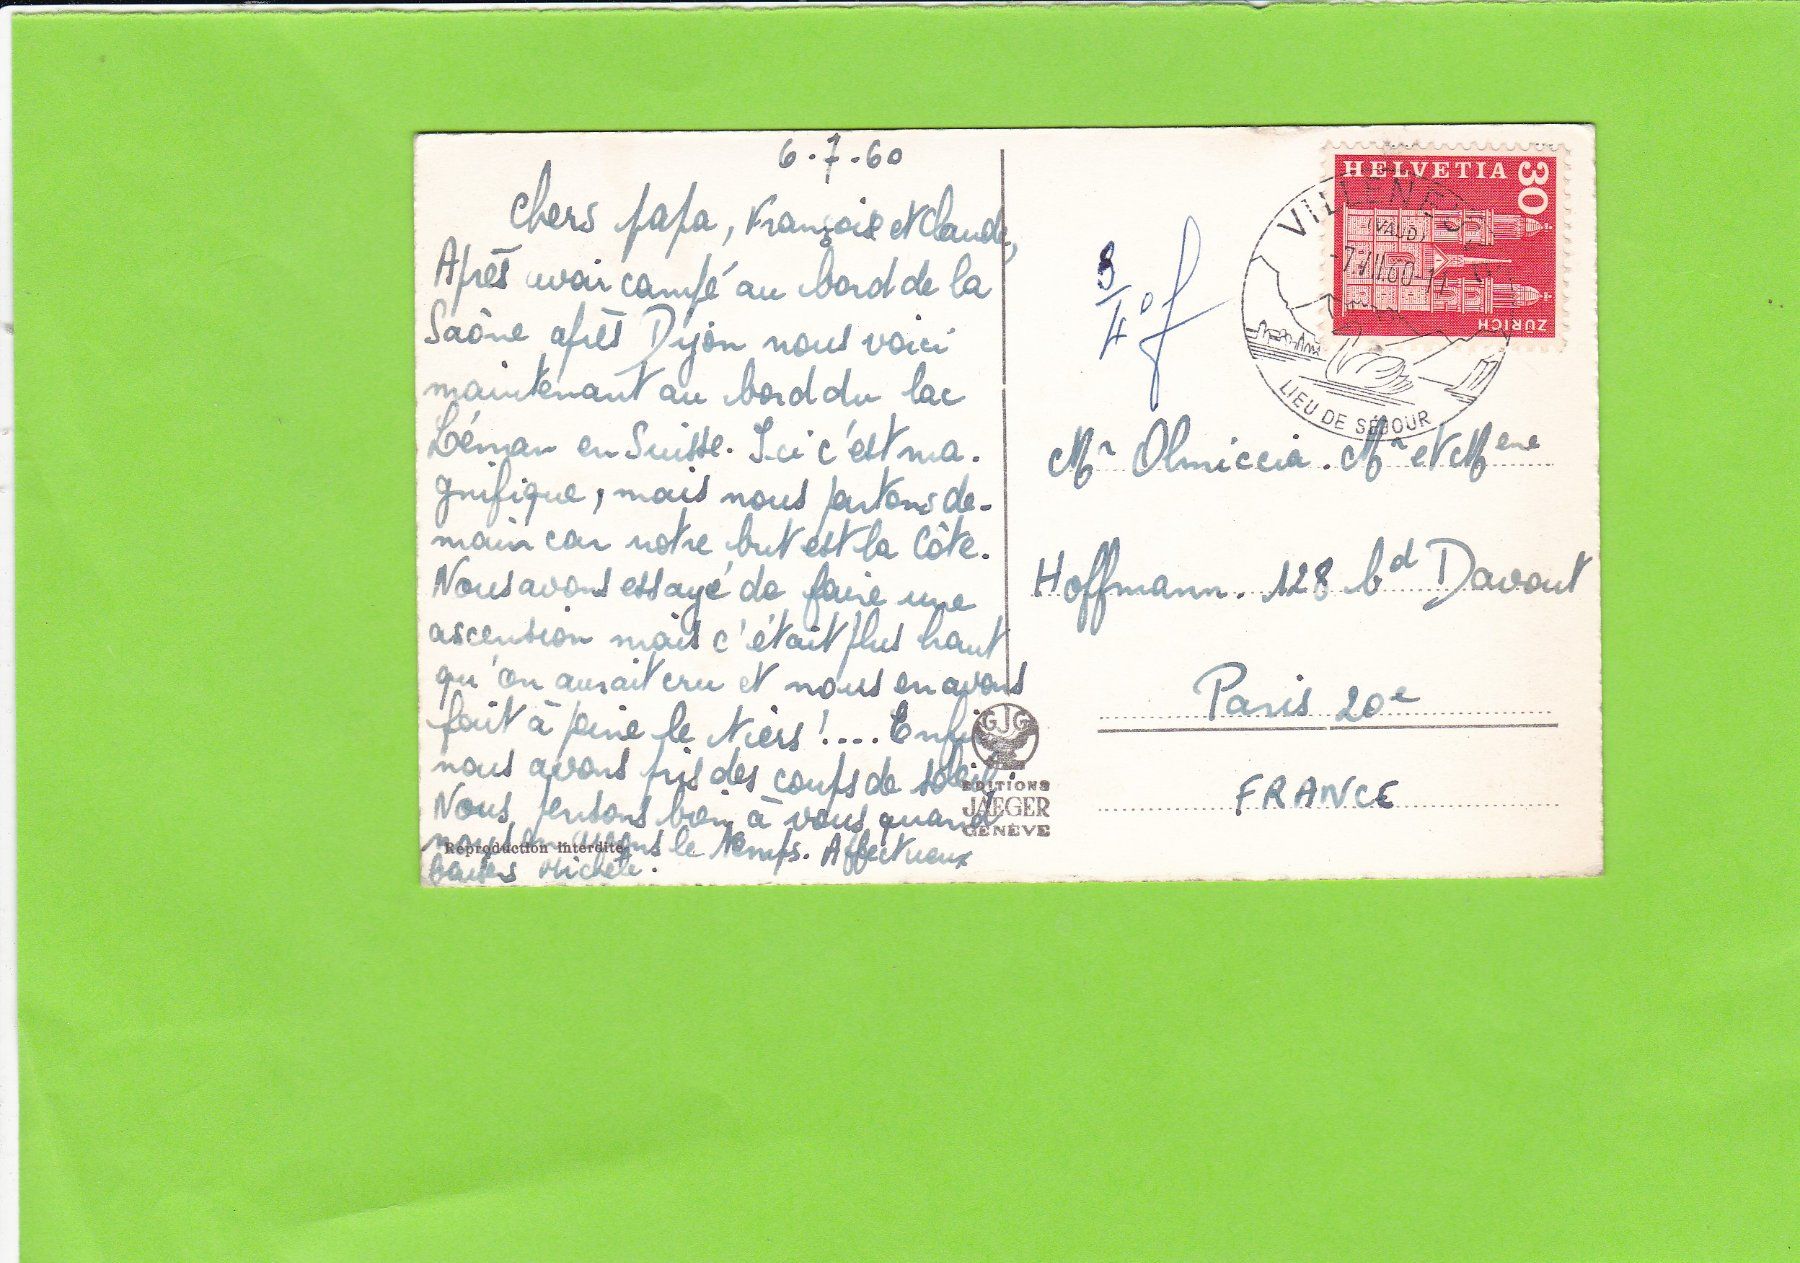 6.7.60
Chers papa, Françoise et Claude,
Après avoir campé au bord de la
Saône après Dijon nous voici
maintenant au bord du lac
Léman en Suisse. Ici c'est ma.
gnifique, mais nous partons de-
main car notre but est la Côte.
Nous avons essayé de faire une
ascension mais c'était plus haut
qu'on aurait cru et nous en avons
fait à peine le tiers!.... Enfin
nous avons pris des coups de soleil.
Nous pensons bien à vous quand
le temps. Affectueux
baisers Michèle.
Reproduction interdite
GJG
EDITIONS
JAEGER
GENÈVE
HELVETIA 30
ZÜRICH
VILLENEUVE
(VAUD)
-7.VII.60-11
LIEU DE SÉJOUR
Mr Olmiccia. Mr et Mme
Hoffmann. 128 bd Davout
Paris 20e
FRANCE